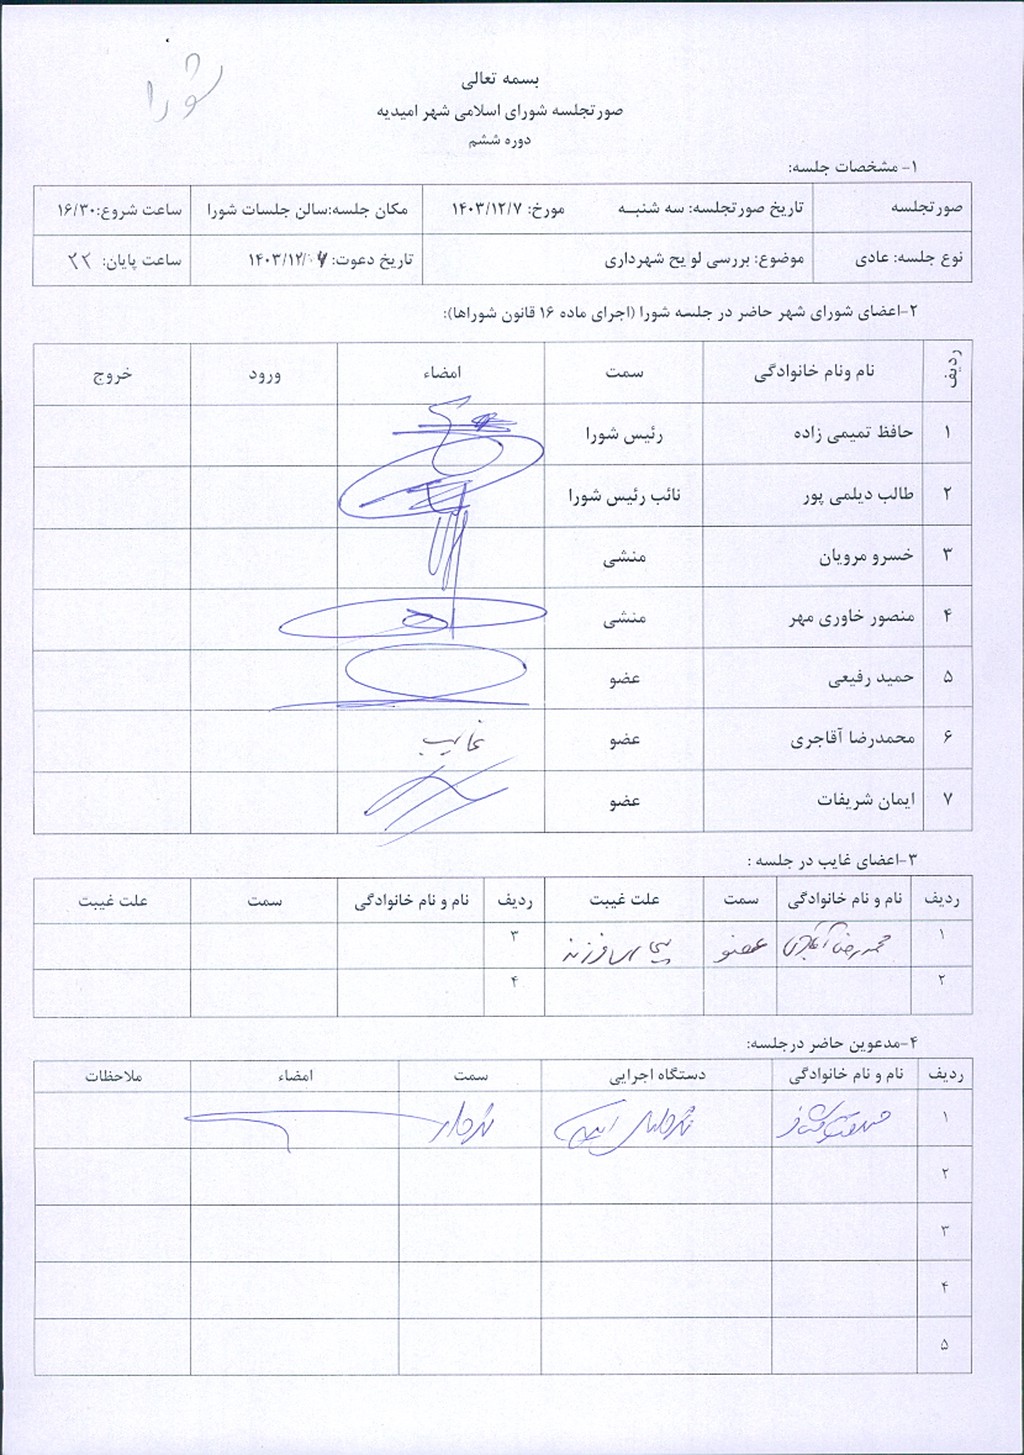 شورا
بسمه تعالی
صورتجلسه شورای اسلامی شهر امیدیه
دوره ششم
۱- مشخصات جلسه:
صورتجلسه تاریخ صورتجلسه: سه شنبـه مورخ: ۱۴۰۳/۱۲/۷ مکان جلسه:سالن جلسات شورا ساعت شروع:۱۶/۳۰
نوع جلسه: عادی موضوع: بررسی لوایح شهرداری تاریخ دعوت: ۱۴۰۳/۱۲/ ساعت پایان: ۲۲
۲-اعضای شورای شهر حاضر در جلسه شورا (اجرای ماده ۱۶ قانون شوراها):
ردیف نام ونام خانوادگی سمت امضاء ورود خروج
۱ حافظ تمیمی زاده رئیس شورا
۲ طالب دیلمی پور نائب رئیس شورا
۳ خسرو مرویان منشی
۴ منصور خاوری مهر منشی
۵ حمید رفیعی عضو
۶ محمدرضا آقاجری عضو غایب
۷ ایمان شریفات عضو
۳-اعضای غایب در جلسه :
ردیف نام و نام خانوادگی سمت علت غیبت ردیف نام و نام خانوادگی سمت علت غیبت
۱ محمدرضا آقاجری عضو فرزند ۳
۲ ۴
۴-مدعوین حاضر درجلسه:
ردیف نام و نام خانوادگی دستگاه اجرایی سمت امضاء ملاحظات
۱ شهرداری امیدیه شهردار
۲
۳
۴
۵